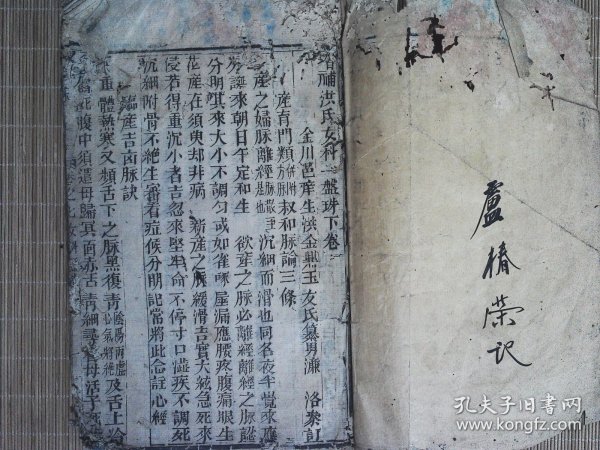 盧椿荣记
補洪氏女科一盤珠下卷
金川邑庠生洪金鼎玉友氏纂男濂洛泰訂
産育門類 叔和脉論三條
産之婦脉離經 沉細而滑也同名夜半覺來應
分娩來朝日午定和生 欲産之脉必離經離經之脉
分明其來大小不調勻或如雀啄屋漏應腰疼腹痛眼生
花産在須臾却非病 新産之脉緩滑吉實大弦急死來
侵若得重沉小者吉忽來堅牢命不停寸口濇疾不調死
沉細附骨不絶生審看症候分明記常將此念註心經
臨産吉凶脉訣
重體熱寒又頻舌下之脉黑復青 及舌上冷
腹中須遣母歸冥面赤舌青細尋 母活子死
孔夫子旧书网
www.kongfz.com